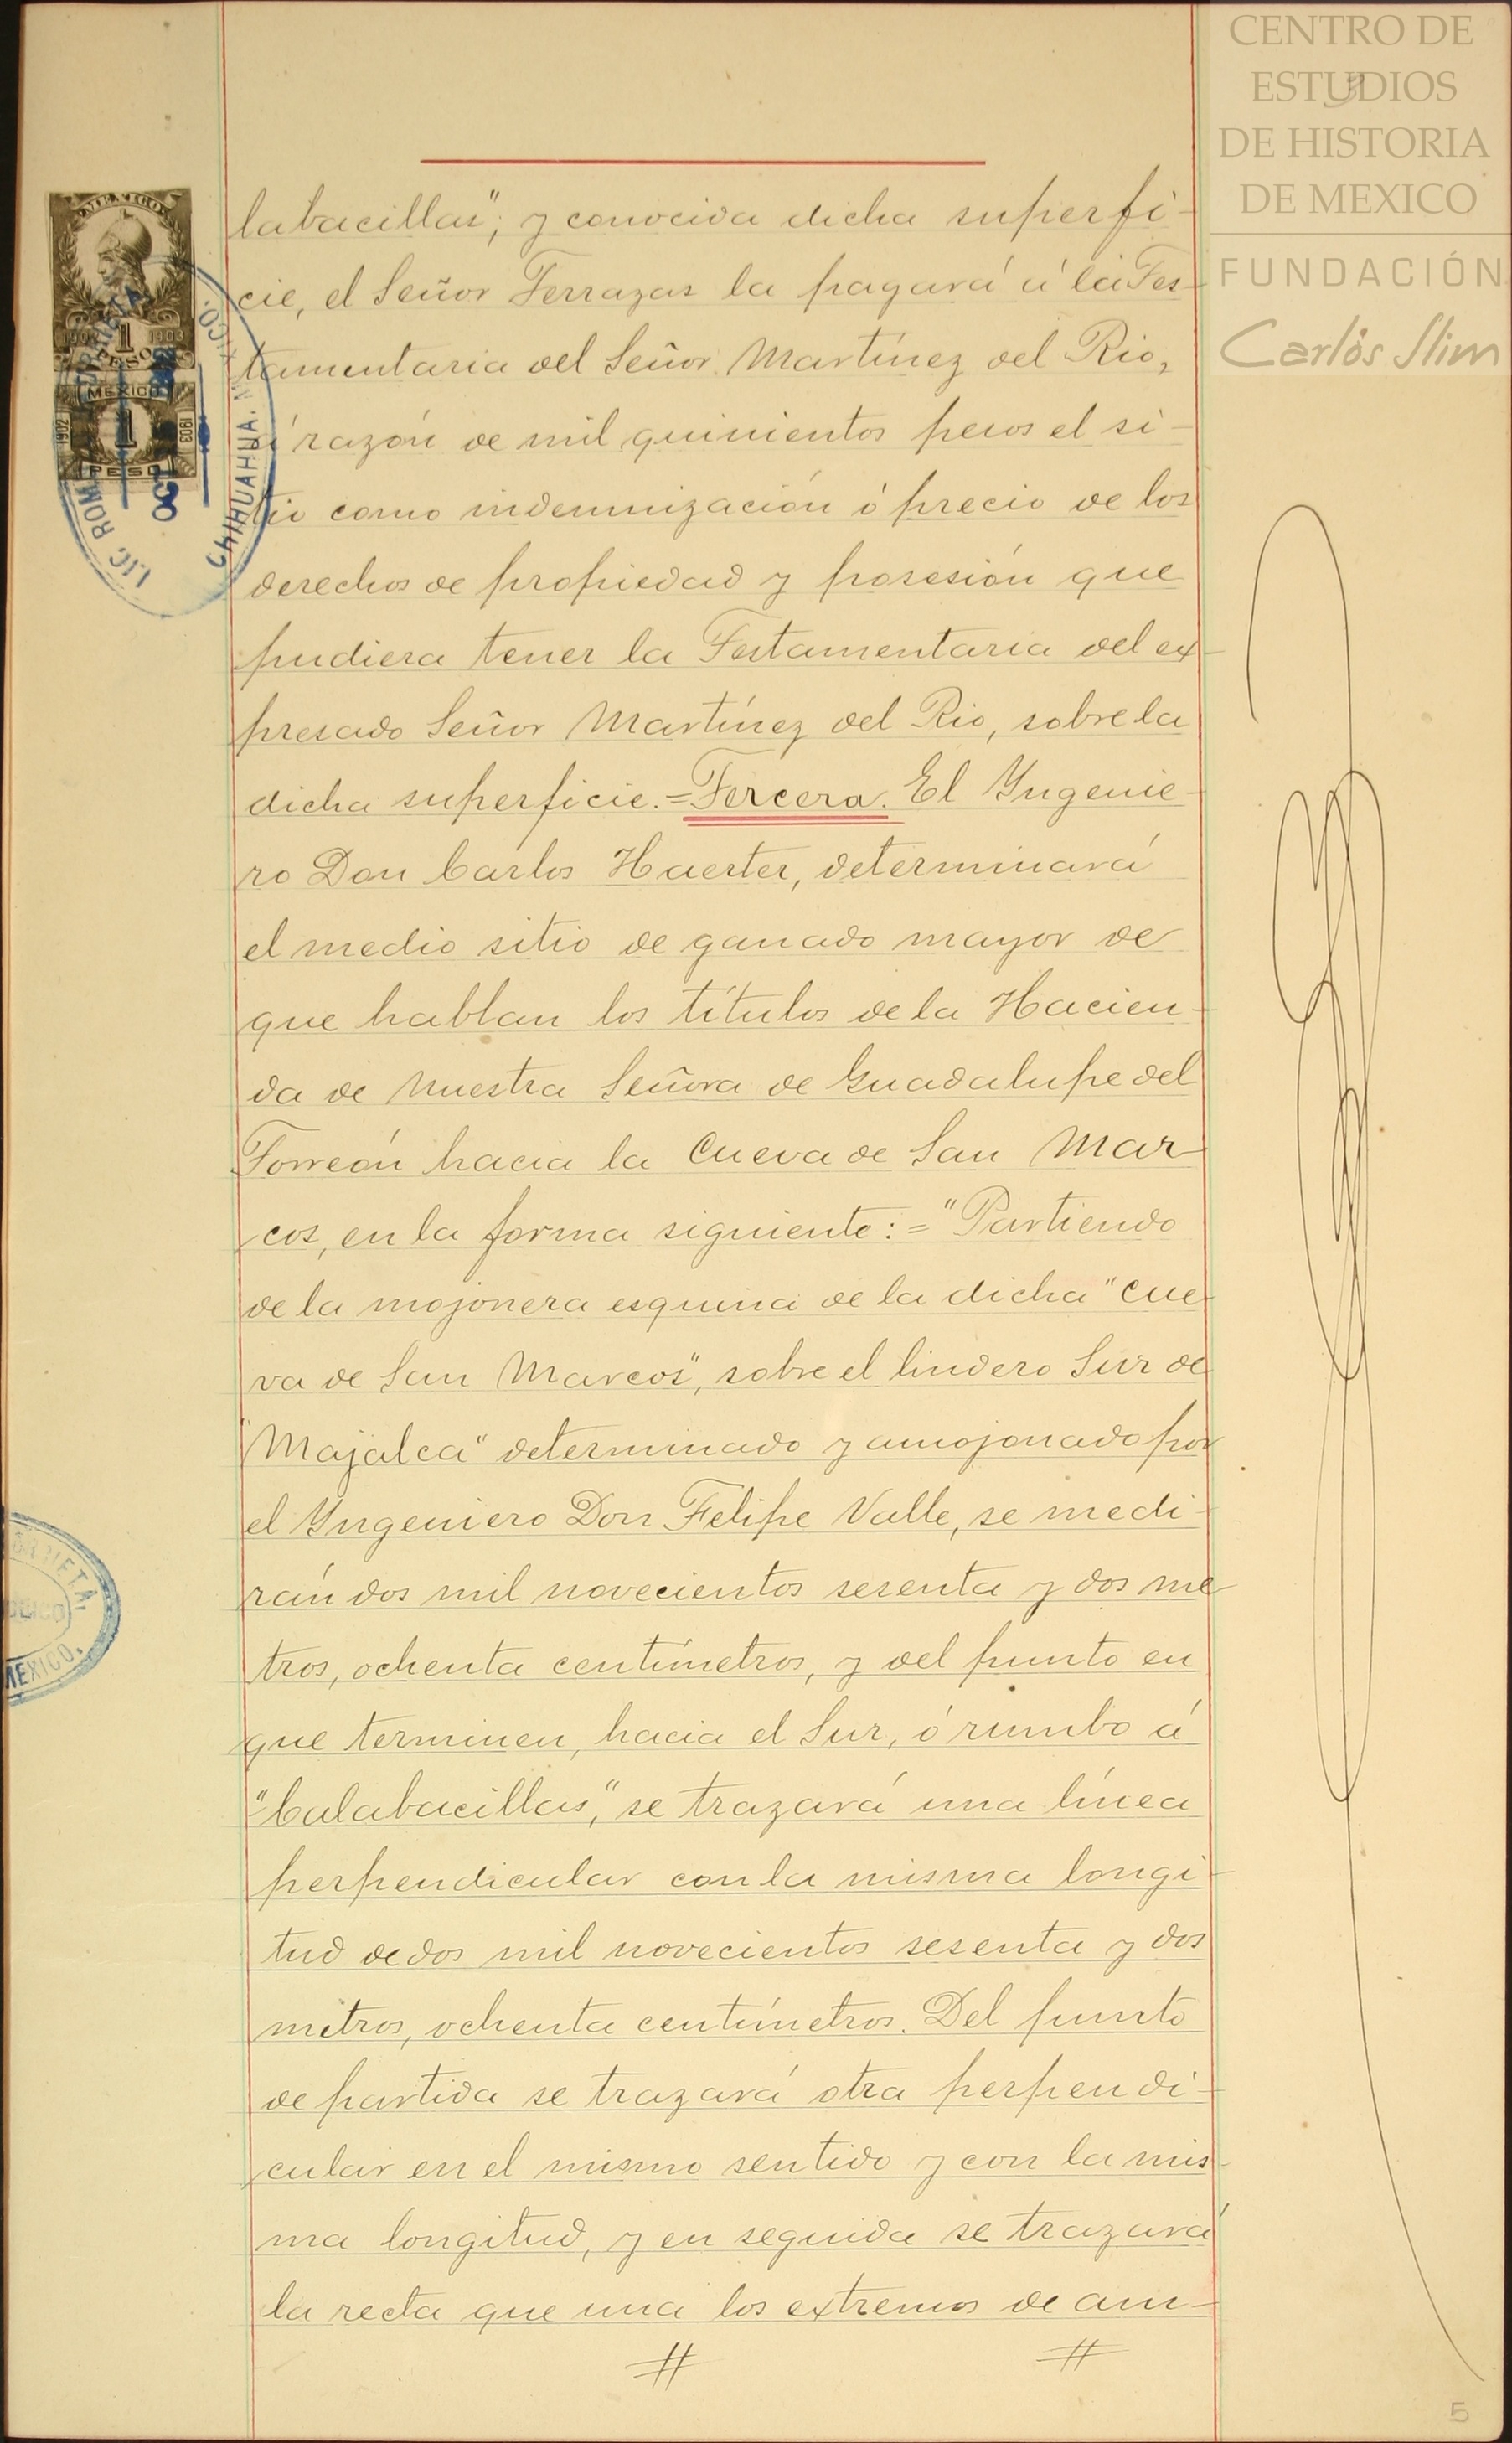 CENTRO DE
ESTUDIOS
DE HISTORIA
DE MEXICO
FUNDACIÓN
Carlos Slim
MEXICO
1902 1 1903
PESO
MEXICO
1902 1 1903
PESO
LIC. ROM
CHIHUAHUA.
labacillas", y conocida dicha superfi-
cie, el Señor Terrazas la pagará á la Tes-
tamentaria del Señor Martínez del Rio,
á razón de mil quinientos pesos el si-
tio como indemnización ó precio de los
derechos de propiedad y posesión que
pudiera tener la Testamentaria del ex-
presado Señor Martínez del Rio, sobre la
dicha superficie.=Tercera. El Yngenie-
ro Don Carlos Haerter, determinará
el medio sitio de ganado mayor de
que hablan los títulos de la Hacien-
da de Nuestra Señora de Guadalupe del
Torreón hacia la Cueva de San Mar-
cos, en la forma siguiente:="Partiendo
de la mojonera esquina de la dicha "Cue-
va de San Marcos", sobre el lindero Sur de
"Majalca" determinado y amojonado por
el Yngeniero Don Felipe Valle, se medi-
rán dos mil novecientos sesenta y dos me-
tros, ochenta centímetros, y del punto en
que terminen, hacia el Sur, ó rumbo á
"Calabacillas", se trazará una línea
perpendicular con la misma longi-
tud de dos mil novecientos sesenta y dos
metros, ochenta centímetros. Del punto
de partida se trazará otra perpendi-
cular en el mismo sentido y con la mis-
ma longitud, y en seguida se trazará
la recta que una los extremos de am-
RRIETA,
MEXICO.
5